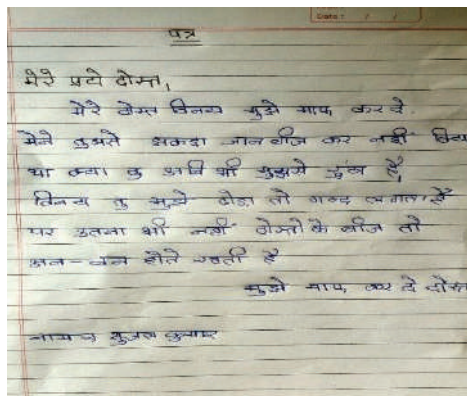 Date : / /
पत्र
मेरे प्रये दोस्त,
मेरे दोस्त विनय मुझे माफ कर दे.
मेने तुमसे झगडा जान बीज कर नहीं किया
था क्या तु अभि भी मुझसे गुस्सा है,
विनय तु मुझे दोस्त तो लगता है
पर उतना भी नहीं दोस्तो के बीज तो
अन-बन होते रहती है
मुझे माफ कर दे दोस्त
कुमार